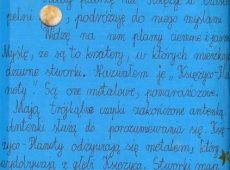 pełni podróżuję do niego myślami
Widzę na nim plamy ciemne i jasne
Myślę, że są to kratery, w których mieszkają
dziwne stworki. Nazwałem je "Księżyco-
ludy". Są one metalowe, pomarańczowe.
Mają trójkątne czapki zakończone antenką.
Antenki służą do porozumiewania się. Księ-
życo-ludy odżywiają się metalem, który
wydobywają z głębi Księżyca. Stworki mają